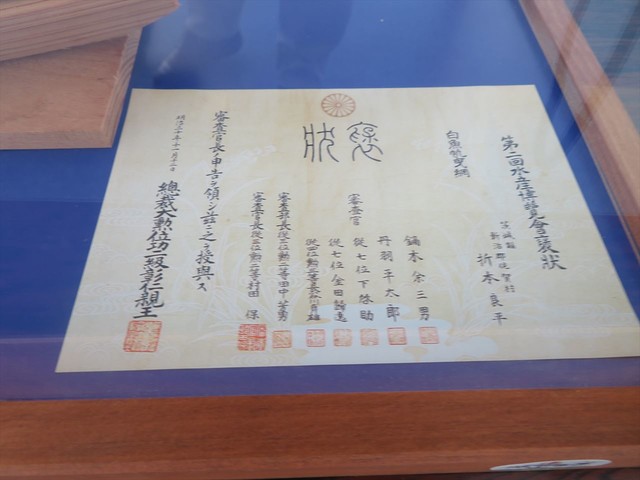 褒状
第二回水産博覧会褒状
茨城縣
新治郡佐賀村
折本良平
白魚曳網
審査官
鏑木余三男
丹羽平太郎
從七位下啓助
從七位金田歸逸
審査部長從六位勲六等田中芳男
審査官長從三位勲二等村田保
審査官長ノ申告ヲ領シ茲ニ之ヲ授與ス
明治三十年十一月十二日
總裁大勲位功二級彰仁親王